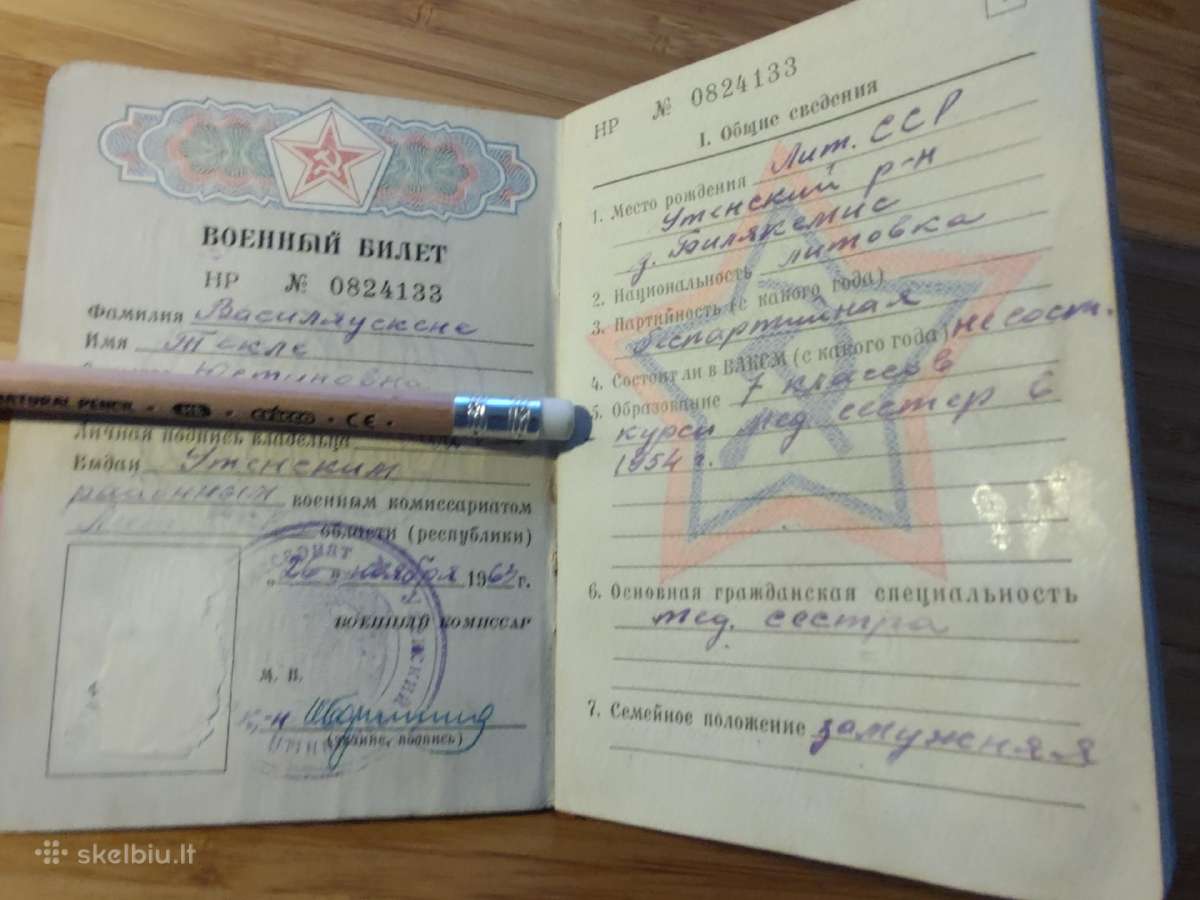 ВОЕННЫЙ БИЛЕТ
НР № 0824133
Фамилия Василяускене
Имя Текле
Юстиновна
NATURAL PENCIL • HB • CE •
Личная подпись владельца
Выдан Утенским
районным военным комиссариатом
области (республики)
„26 " ноября 1964 г.
ВОЕННЫЙ КОМИССАР
М. П.
к-н
(звание, подпись)
НР № 0824133
1. Общие сведения
1. Место рождения Лит. ССР
Утенский р-н
д. Билякемис
2. Национальность литовка
3. Партийность (с какого года)
беспартийная
4. Состоит ли в ВЛКСМ (с какого года) не сост.
5. Образование 7 классов
курсы мед сестер в
1954 г.
6. Основная гражданская специальность
мед. сестра
7. Семейное положение замужняя
skelbiu.lt